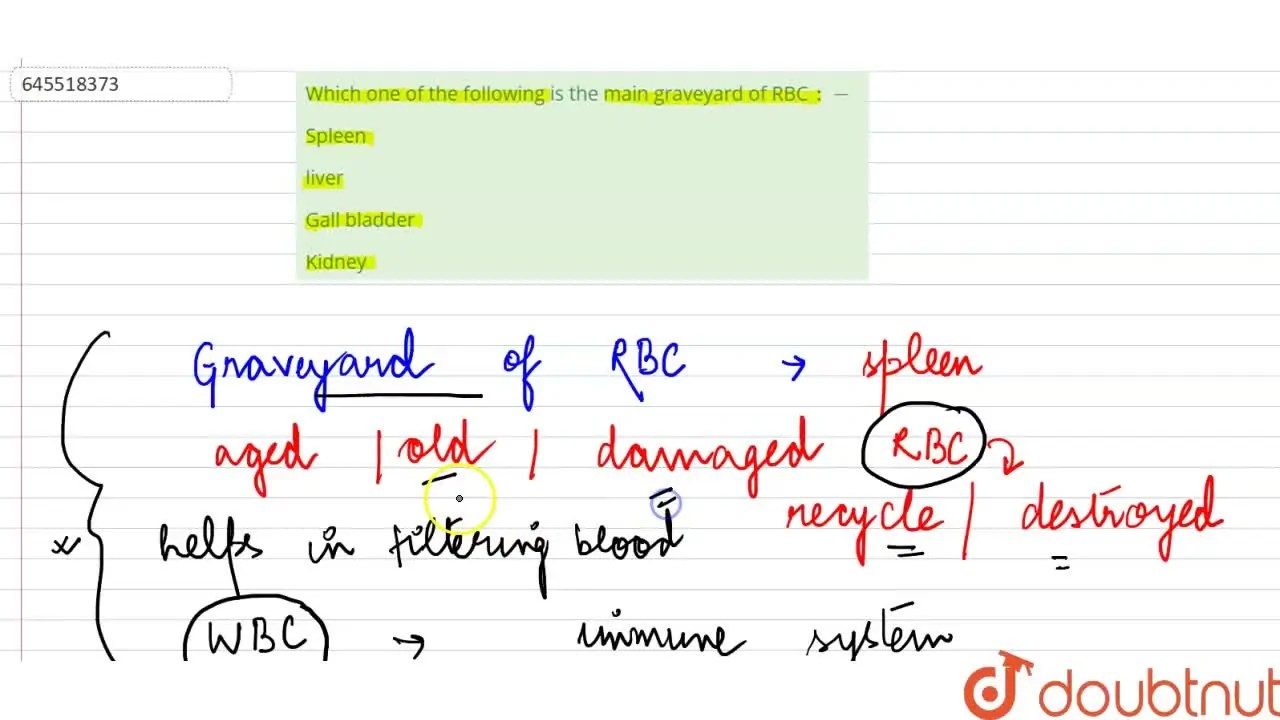 645518373
Which one of the following is the main graveyard of RBC : —
Spleen
liver
Gall bladder
Kidney
Graveyard of RBC → spleen
aged / old / damaged RBC
recycle / destroyed
helps in filtering blood
WBC → immune system
doubtnut